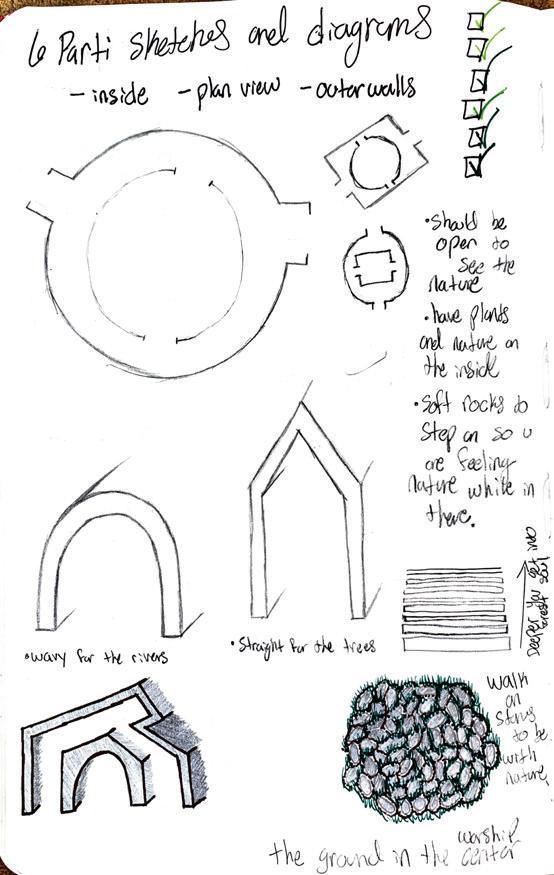 6 Parti sketches and diagrams
- inside - plan view - outer walls
• Should be
open to
see the
nature
• have plants
and nature on
the inside
• Soft rocks to
step on so u
are feeling
nature while in
there.
Deeper you get into
forest soul
• wavy for the rivers
• Straight for the trees
Walk
on
stones
to be
with
nature
the ground in the worship
center